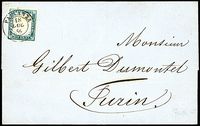 Monsieur
Gilbert Dumontel
Turin